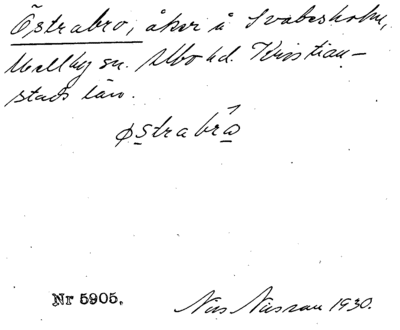 Östrabro, åker å Svabesholm,
Mellby sn. Albo hd. Kristian-
stads län.
østrabrω
Nr 5905.
Nils Nilsson 1930.